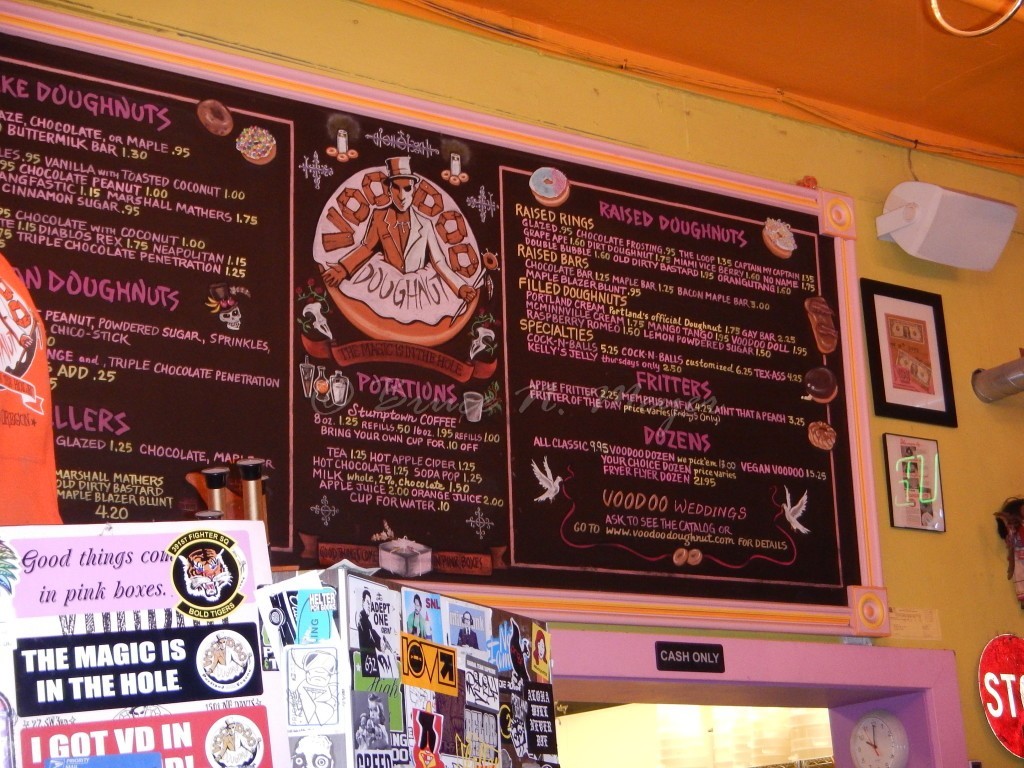 KE DOUGHNUTS
AZE, CHOCOLATE, OR MAPLE .95
BUTTERMILK BAR 1.30
LES .95 VANILLA with TOASTED COCONUT 1.00
.95 CHOCOLATE PEANUT 1.00
ANGFASTIC 1.15 MARSHALL MATHERS 1.75
CINNAMON SUGAR .95
95 CHOCOLATE WITH COCONUT 1.00
TE 1.15 DIABLOS REX 1.75 NEAPOLITAN 1.15
TRIPLE CHOCOLATE PENETRATION 1.25
AN DOUGHNUTS
PEANUT, POWDERED SUGAR, SPRINKLES,
CHICO-STICK
NGE and , TRIPLE CHOCOLATE PENETRATION
ADD .25
LLERS
GLAZED 1.25 CHOCOLATE, MAPLE, OR
MARSHALL MATHERS
OLD DIRTY BASTARD
MAPLE BLAZER BLUNT
4.20
VOODOO
DOUGHNUT
THE MAGIC IS IN THE HOLE
POTATIONS
Stumptown COFFEE
8 oz. 1.25 REFILLS .50 16 oz. 1.95 REFILLS 1.00
BRING YOUR OWN CUP FOR .10 OFF
TEA 1.25 HOT APPLE CIDER 1.25
HOT CHOCOLATE 1.25 SODA POP 1.25
MILK whole, 2%, chocolate 1.50
APPLE JUICE 2.00 ORANGE JUICE 2.00
CUP FOR WATER .10
GOOD THINGS COME IN PINK BOXES
RAISED DOUGHNUTS
RAISED RINGS
GLAZED .95 CHOCOLATE FROSTING .95 THE LOOP 1.35 CAPTAIN MY CAPTAIN 1.35
GRAPE APE 1.60 DIRT DOUGHNUT 1.75 MIAMI VICE BERRY 1.60 NO NAME 1.75
DOUBLE BUBBLE 1.60 OLD DIRTY BASTARD 1.95 ORANGUTANG 1.60
RAISED BARS
CHOCOLATE BAR 1.25 MAPLE BAR 1.25 BACON MAPLE BAR 3.00
MAPLE BLAZER BLUNT .95
FILLED DOUGHNUTS
PORTLAND CREAM Portland's official Doughnut 1.75 GAY BAR 2.25
MCMINNVILLE CREAM 1.75 MANGO TANGO 1.95 VOODOO DOLL 1.95
RASPBERRY ROMEO 1.50 LEMON POWDERED SUGAR 1.50
SPECIALTIES
COCK-N-BALLS 5.25 COCK-N-BALLS customized 6.25 TEX-ASS 4.25
KELLY'S JELLY thursdays only 2.50
FRITTERS
APPLE FRITTER 2.25 MEMPHIS MAFIA 4.25 AINT THAT A PEACH 3.25
FRITTER OF THE DAY price varies (Fridays Only)
DOZENS
ALL CLASSIC 9.95 VOODOO DOZEN we pick'em 13.00 VEGAN VOODOO 15.25
YOUR CHOICE DOZEN price varies
FRYER FLYER DOZEN 21.95
VOODOO WEDDINGS
ASK TO SEE THE CATALOG OR
GO TO www.voodoodoughnut.com FOR DETAILS
Good things com
in pink boxes.
131ST FIGHTER SQ
BOLD TIGERS
THE MAGIC IS
IN THE HOLE
I GOT VD IN
ADOPT ONE
SNL
LOVE
CASH ONLY
STO